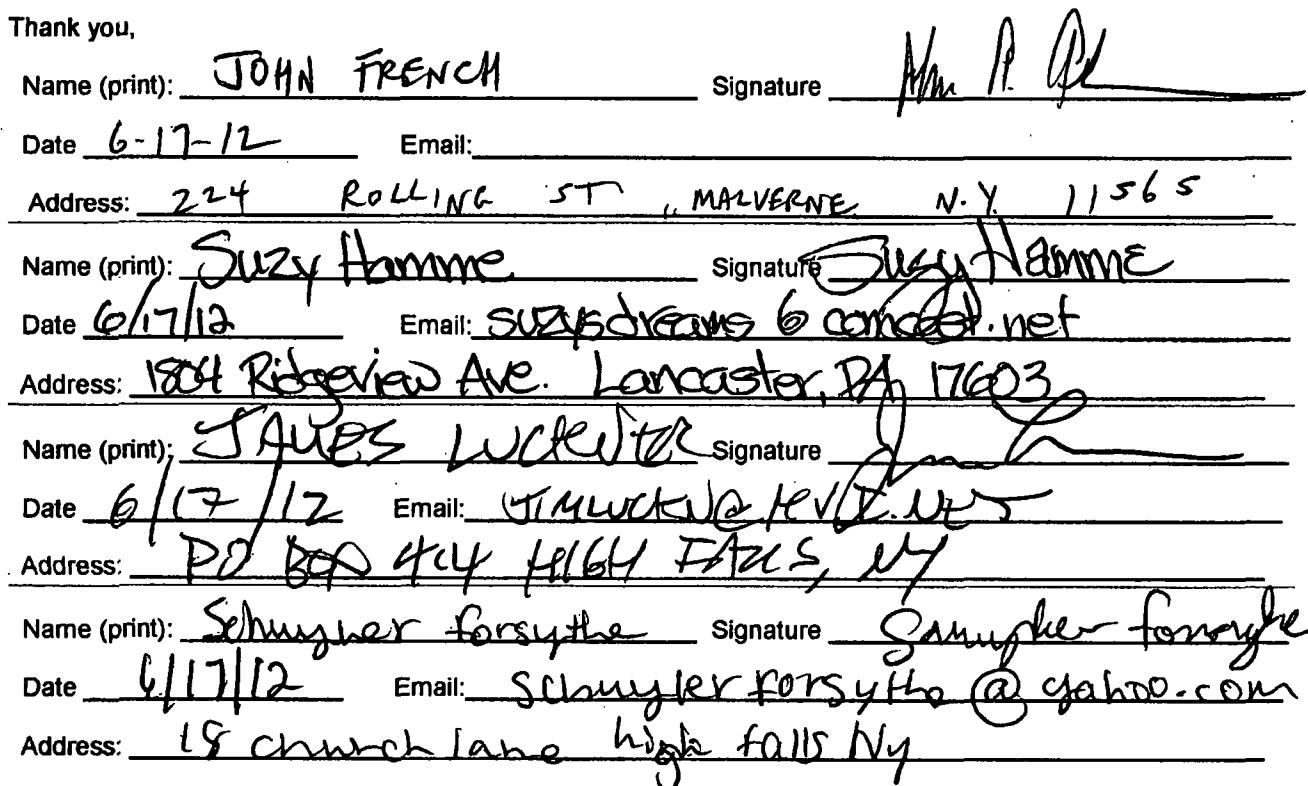 Thank you,
Name (print): JOHN FRENCH Signature
Date 6-17-12 Email:
Address: 224 ROLLING ST, MALVERNE N.Y. 11565
Name (print): Suzy Hamme Signature Suzy Hamme
Date 6/17/12 Email: suzysdreams@comcast.net
Address: 1804 Ridgeview Ave. Lancaster, PA 17603
Name (print): JAMES Signature
Date 6/17/12 Email:
Address: PO Box 414 HIGH FALLS, NY
Name (print): Schuyler Forsythe Signature Schuyler Forsythe
Date 6/17/12 Email: schuylerforsythe@yahoo.com
Address: 18 church lane high falls NY